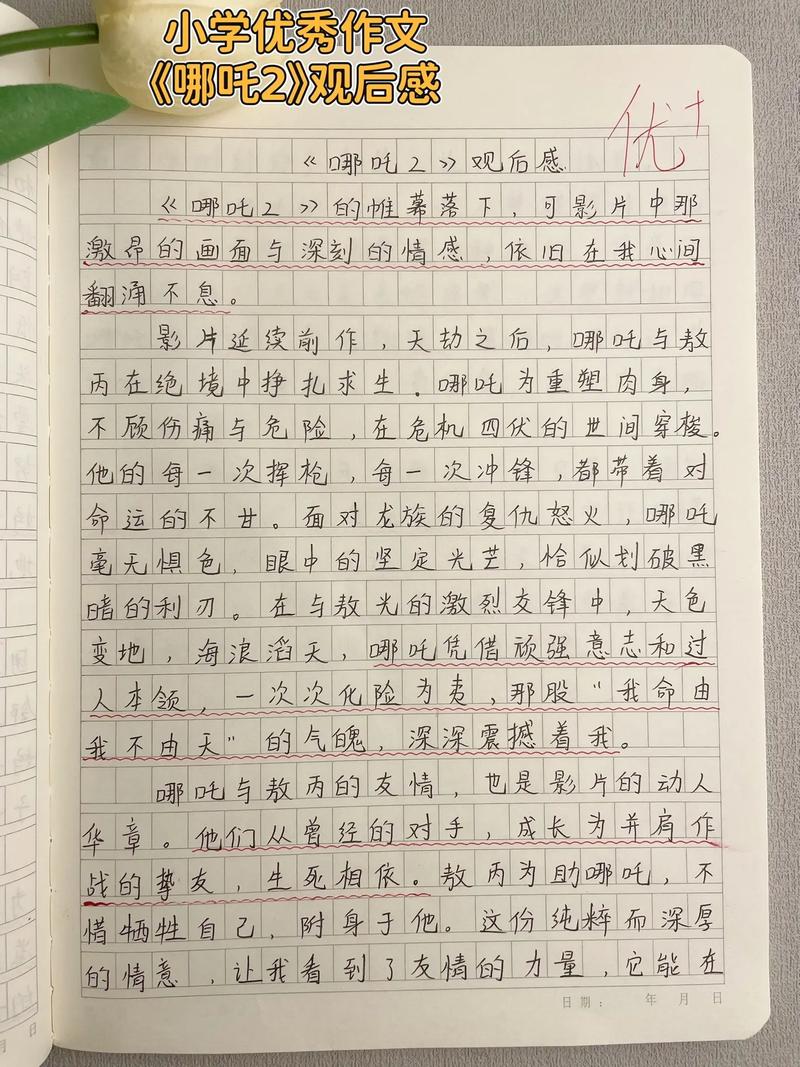 小学优秀作文
《哪吒2》观后感
优+
《哪吒2》观后感
《哪吒2》的帷幕落下，可影片中那
激昂的画面与深刻的情感，依旧在我心间
翻涌不息。
影片延续前作，天劫之后，哪吒与敖
丙在绝境中挣扎求生．哪吒为重塑肉身，
不顾伤痛与危险，在危机四伏的世间穿梭。
他的每一次挥枪，每一次冲锋，都带着对
命运的不甘。面对龙族的复仇怒火，哪吒
毫无惧色，眼中的坚定光芒，恰似划破黑
暗的利刃。在与敖光的激烈交锋中，天色
变地，海浪滔天，哪吒凭借顽强意志和过
人本领，一次次化险为夷，那股“我命由
我不由天”的气魄，深深震撼着我。
哪吒与敖丙的友情，也是影片的动人
华章。他们从曾经的对手，成长为并肩作
战的挚友，生死相依。敖丙为助哪吒，不
惜牺牲自己，附身于他。这份纯粹而深厚
的情意，让我看到了友情的力量，它能在
日期： 年 月 日